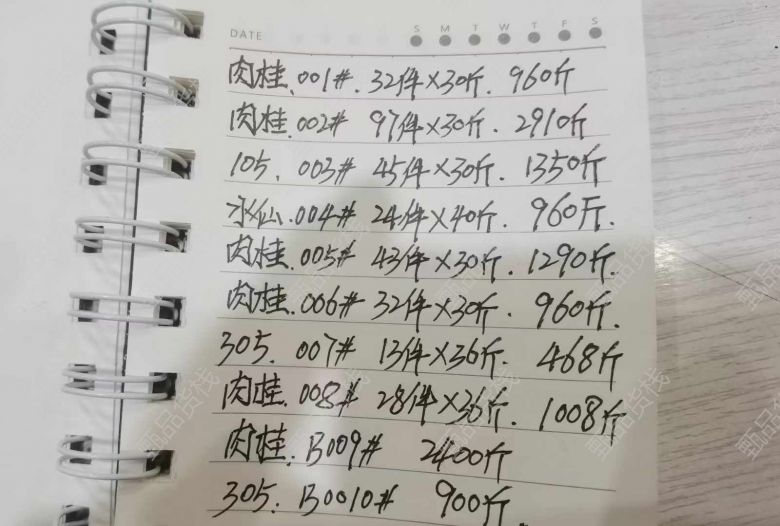 DATE S M T W T F S
肉桂.001#.32件×30斤.960斤
肉桂.002# 97件×30斤.2910斤
105.003# 45件×30斤.1350斤
水仙.004# 24件×40斤.960斤.
肉桂.005# 43件×30斤.1290斤.
肉桂.006# 32件×30斤.960斤.
305.007# 13件×36斤.468斤
肉桂.008# 28件×36斤.1008斤
肉桂.B009# 2400斤
305.B0010# 900斤.
甄品货栈